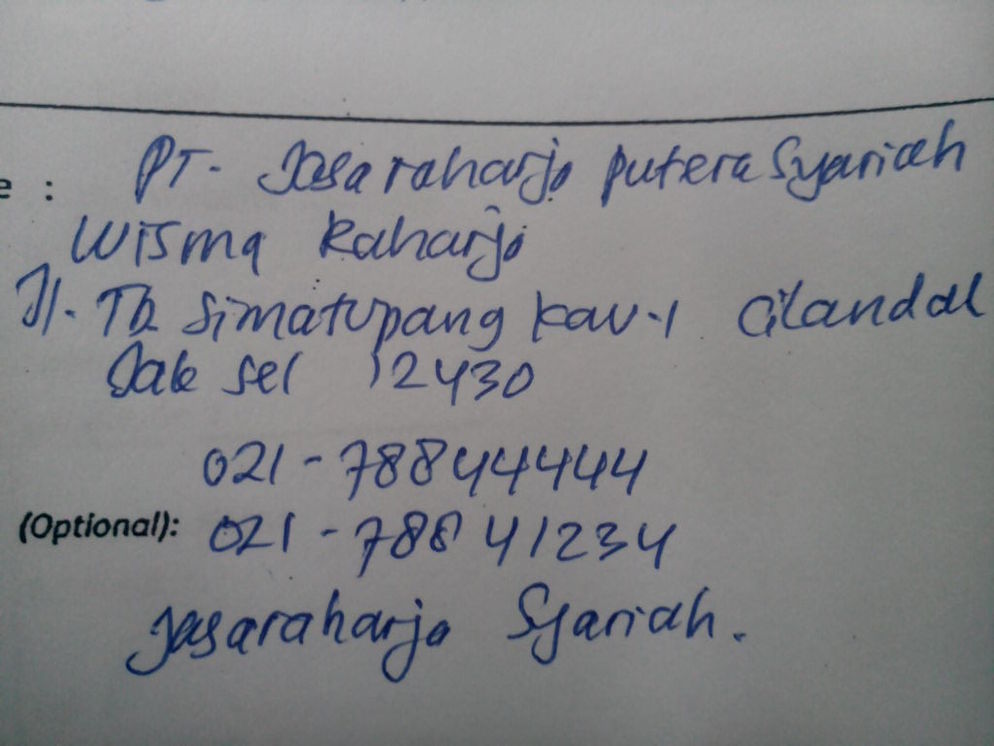 e : PT. Jasaraharjo putera Syariah
Wisma Raharjo
Jl. Tb. Simatupang kav.1 Cilandak
Jak sel 12430
021-78844444
(Optional): 021-78841234
Jasaraharjo Syariah.